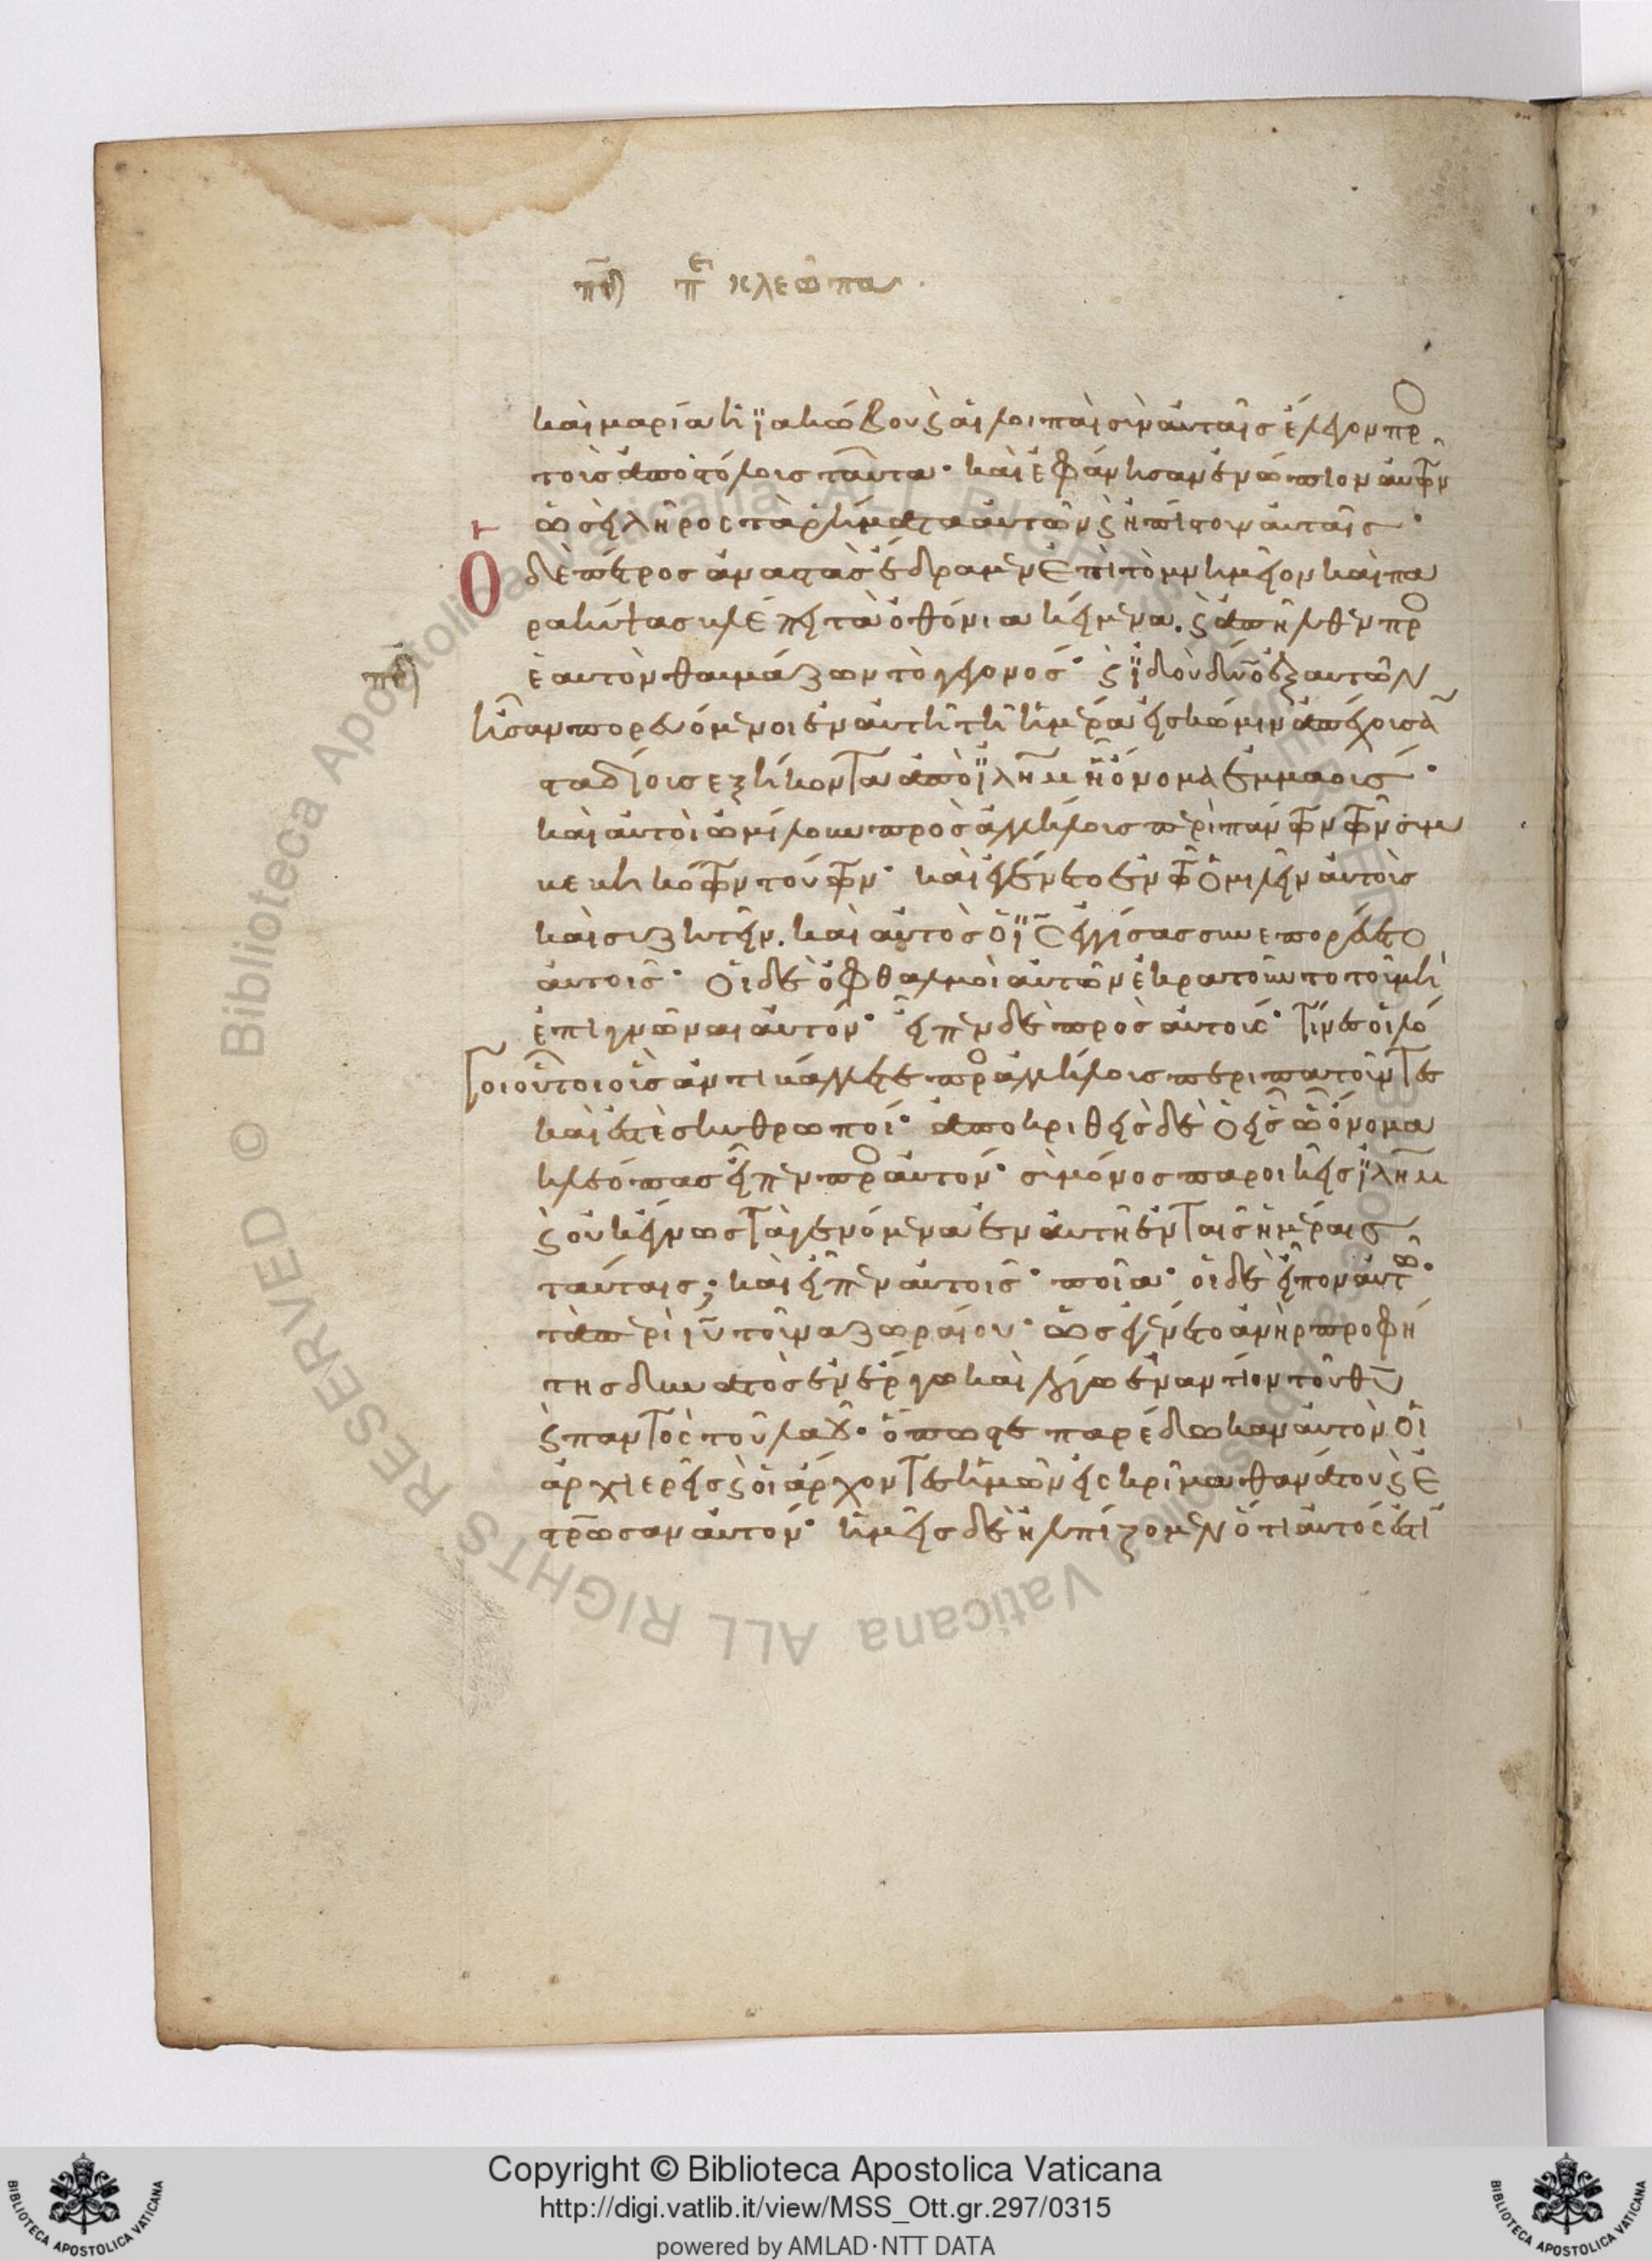 π̅ε̅ κλεώπα
καὶ μαρία ἡ ϊακώβου ϗ αἱ λοιπαὶ σὺν αὐταῖς ἔλεγον πρ
τοὺς ἀποστόλους ταῦτα· καὶ ἐφάνησαν ἐνώπιον αὐτῶν
ὡσεὶ λῆρος τὰ ῥήματα αὐτῶν ϗ ἠπίστουν αὐταῖς·
Ὁ δὲ πέτρος ἀναστὰς ἔδραμεν ἐπὶ τὸ μνημεῖον καὶ πα
ρακύψας βλέπει τὰ ὀθόνια κείμενα. ϗ ἀπῆλθεν πρ
ἑαυτὸν θαυμάζων τὸ γεγονός· ϗ ϊδοὺ δύο ἐξ αὐτῶν
ἦσαν πορευόμενοι ἐν αὐτῆ τῆ ἡμέρα εἰς κώμην ἀπέχουσαν
σταδίους ἑξήκοντα ἀπὸ ϊλημ ἧ ὄνομα ἐμμαούς·
καὶ αὐτοὶ ὡμίλουν πρὸς ἀλλήλους περὶ πάντων τῶν συμ
βεβηκότων τούτων· καὶ ἐγένετο ἐν τῶ ὁμιλεῖν αὐτοὺς
καὶ συζητεῖν. καὶ αὐτὸς ὁ ϊς ἐγγίσας συνεπορεύετο
αὐτοῖς· οἱ δὲ ὀφθαλμοὶ αὐτῶν ἐκρατοῦντο τοῦ μὴ
ἐπιγνῶναι αὐτόν· εἶπεν δὲ πρὸς αὐτούς· τίνες οἱ λό
γοι οὗτοι οὓς ἀντιβάλλετε πρ ἀλλήλους περιπατοῦντες
καὶ ἐστὲ σκυθρωποί· ἀποκριθεὶς δὲ ὁ εἷς ὧ ὄνομα
κλεόπας εἶπεν πρ αὐτόν· σὺ μόνος παροικεῖς ϊλημ
ϗ οὐκ ἔγνως τὰ γενόμενα ἐν αὐτῆ ἐν ταῖς ἡμέραις
ταύταις; καὶ εἶπεν αὐτοῖς· ποῖα· οἱ δὲ εἶπον αὐτῶ·
τὰ περὶ ιυ τοῦ ναζωραίου· ὡς ἐγένετο ἀνὴρ προφή
της δυνατὸς ἐν ἔργω καὶ λόγω ἐναντίον τοῦ θυ
ϗ παντὸς τοῦ λαοῦ· ὅπως τε παρέδωκαν αὐτὸν οἱ
ἀρχιερεῖς ϗ οἱ ἄρχοντες ἡμῶν εἰς κρίμα θανάτου ϗ ἐ
στρωσαν αὐτόν· ἡμεῖς δὲ ἠλπίζομεν ὅτι αὐτός ἐστι
Copyright © Biblioteca Apostolica Vaticana
http://digi.vatlib.it/view/MSS_Ott.gr.297/0315
powered by AMLAD·NTT DATA
Biblioteca Apostolica Vaticana ALL RIGHTS RESERVED ©
BIBLIOTECA APOSTOLICA VATICANA
BIBLIOTECA APOSTOLICA VATICANA